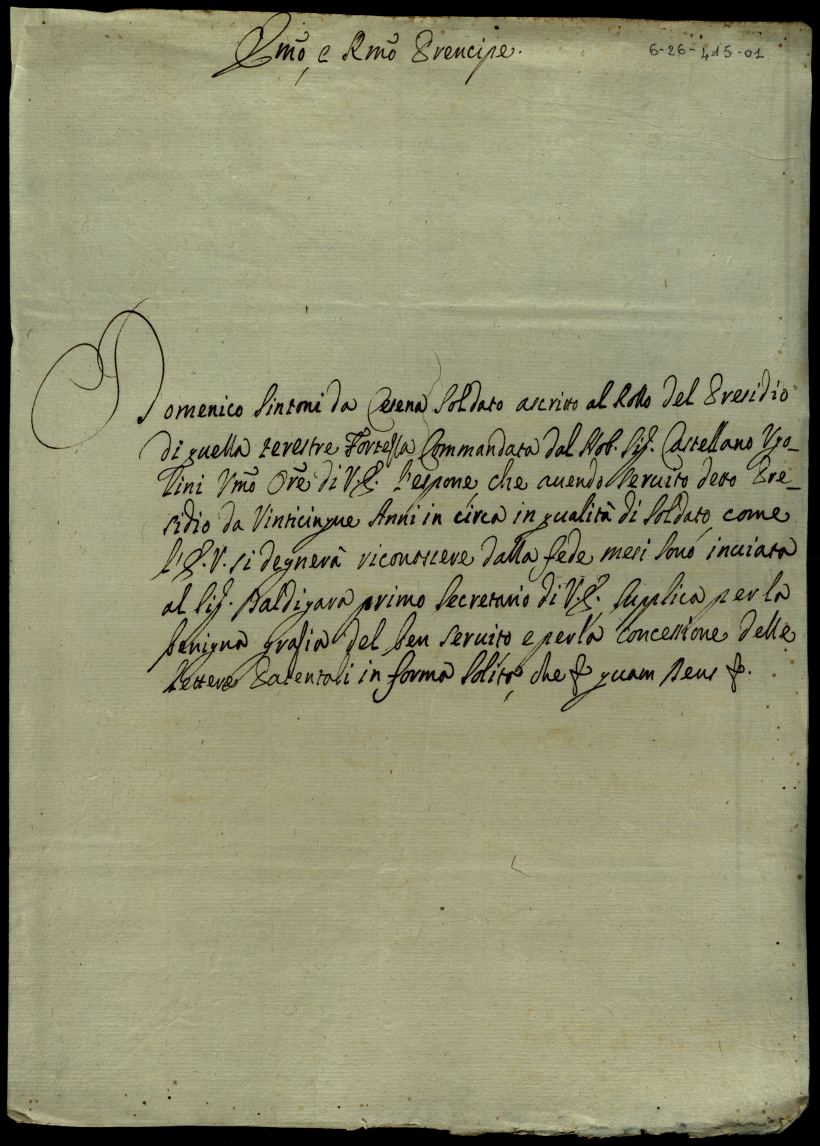 Emõ, e Rmõ Prencipe.
6-26-415-01
Domenico Sintoni da Cesena Soldato ascritto al Rollo del Presidio
di quella terestre Fortessa Commandata dal Nob. Sig. Castellano Ugo-
lini Vmõ Ore di V.E. l'espone, che auendo seruito detto Pre-
sidio da Vinticinque Anni in circa in qualità di Soldato, come
l'E.V. si degnerà riconoscere dalla fede mesi sono inuiata
al Sig. Baldigara primo Secretario di V.E. Supplica per la
benigna grasia del ben seruito e per la concessione delle
Lettere Patentali in forma Solita, che &c quam Deus &c.